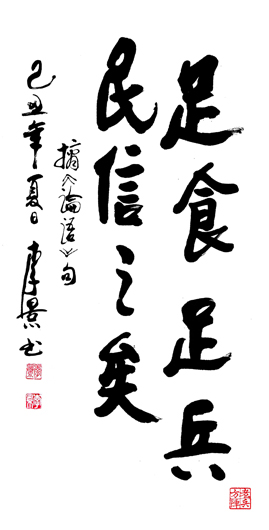 足食足兵
民信之矣
摘《論语》句
己丑年夏日李景书